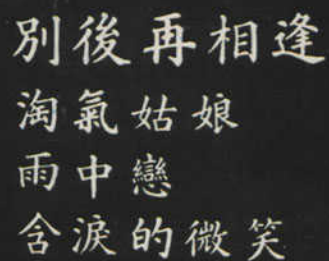 別後再相逢
淘氣姑娘
雨中戀
含淚的微笑